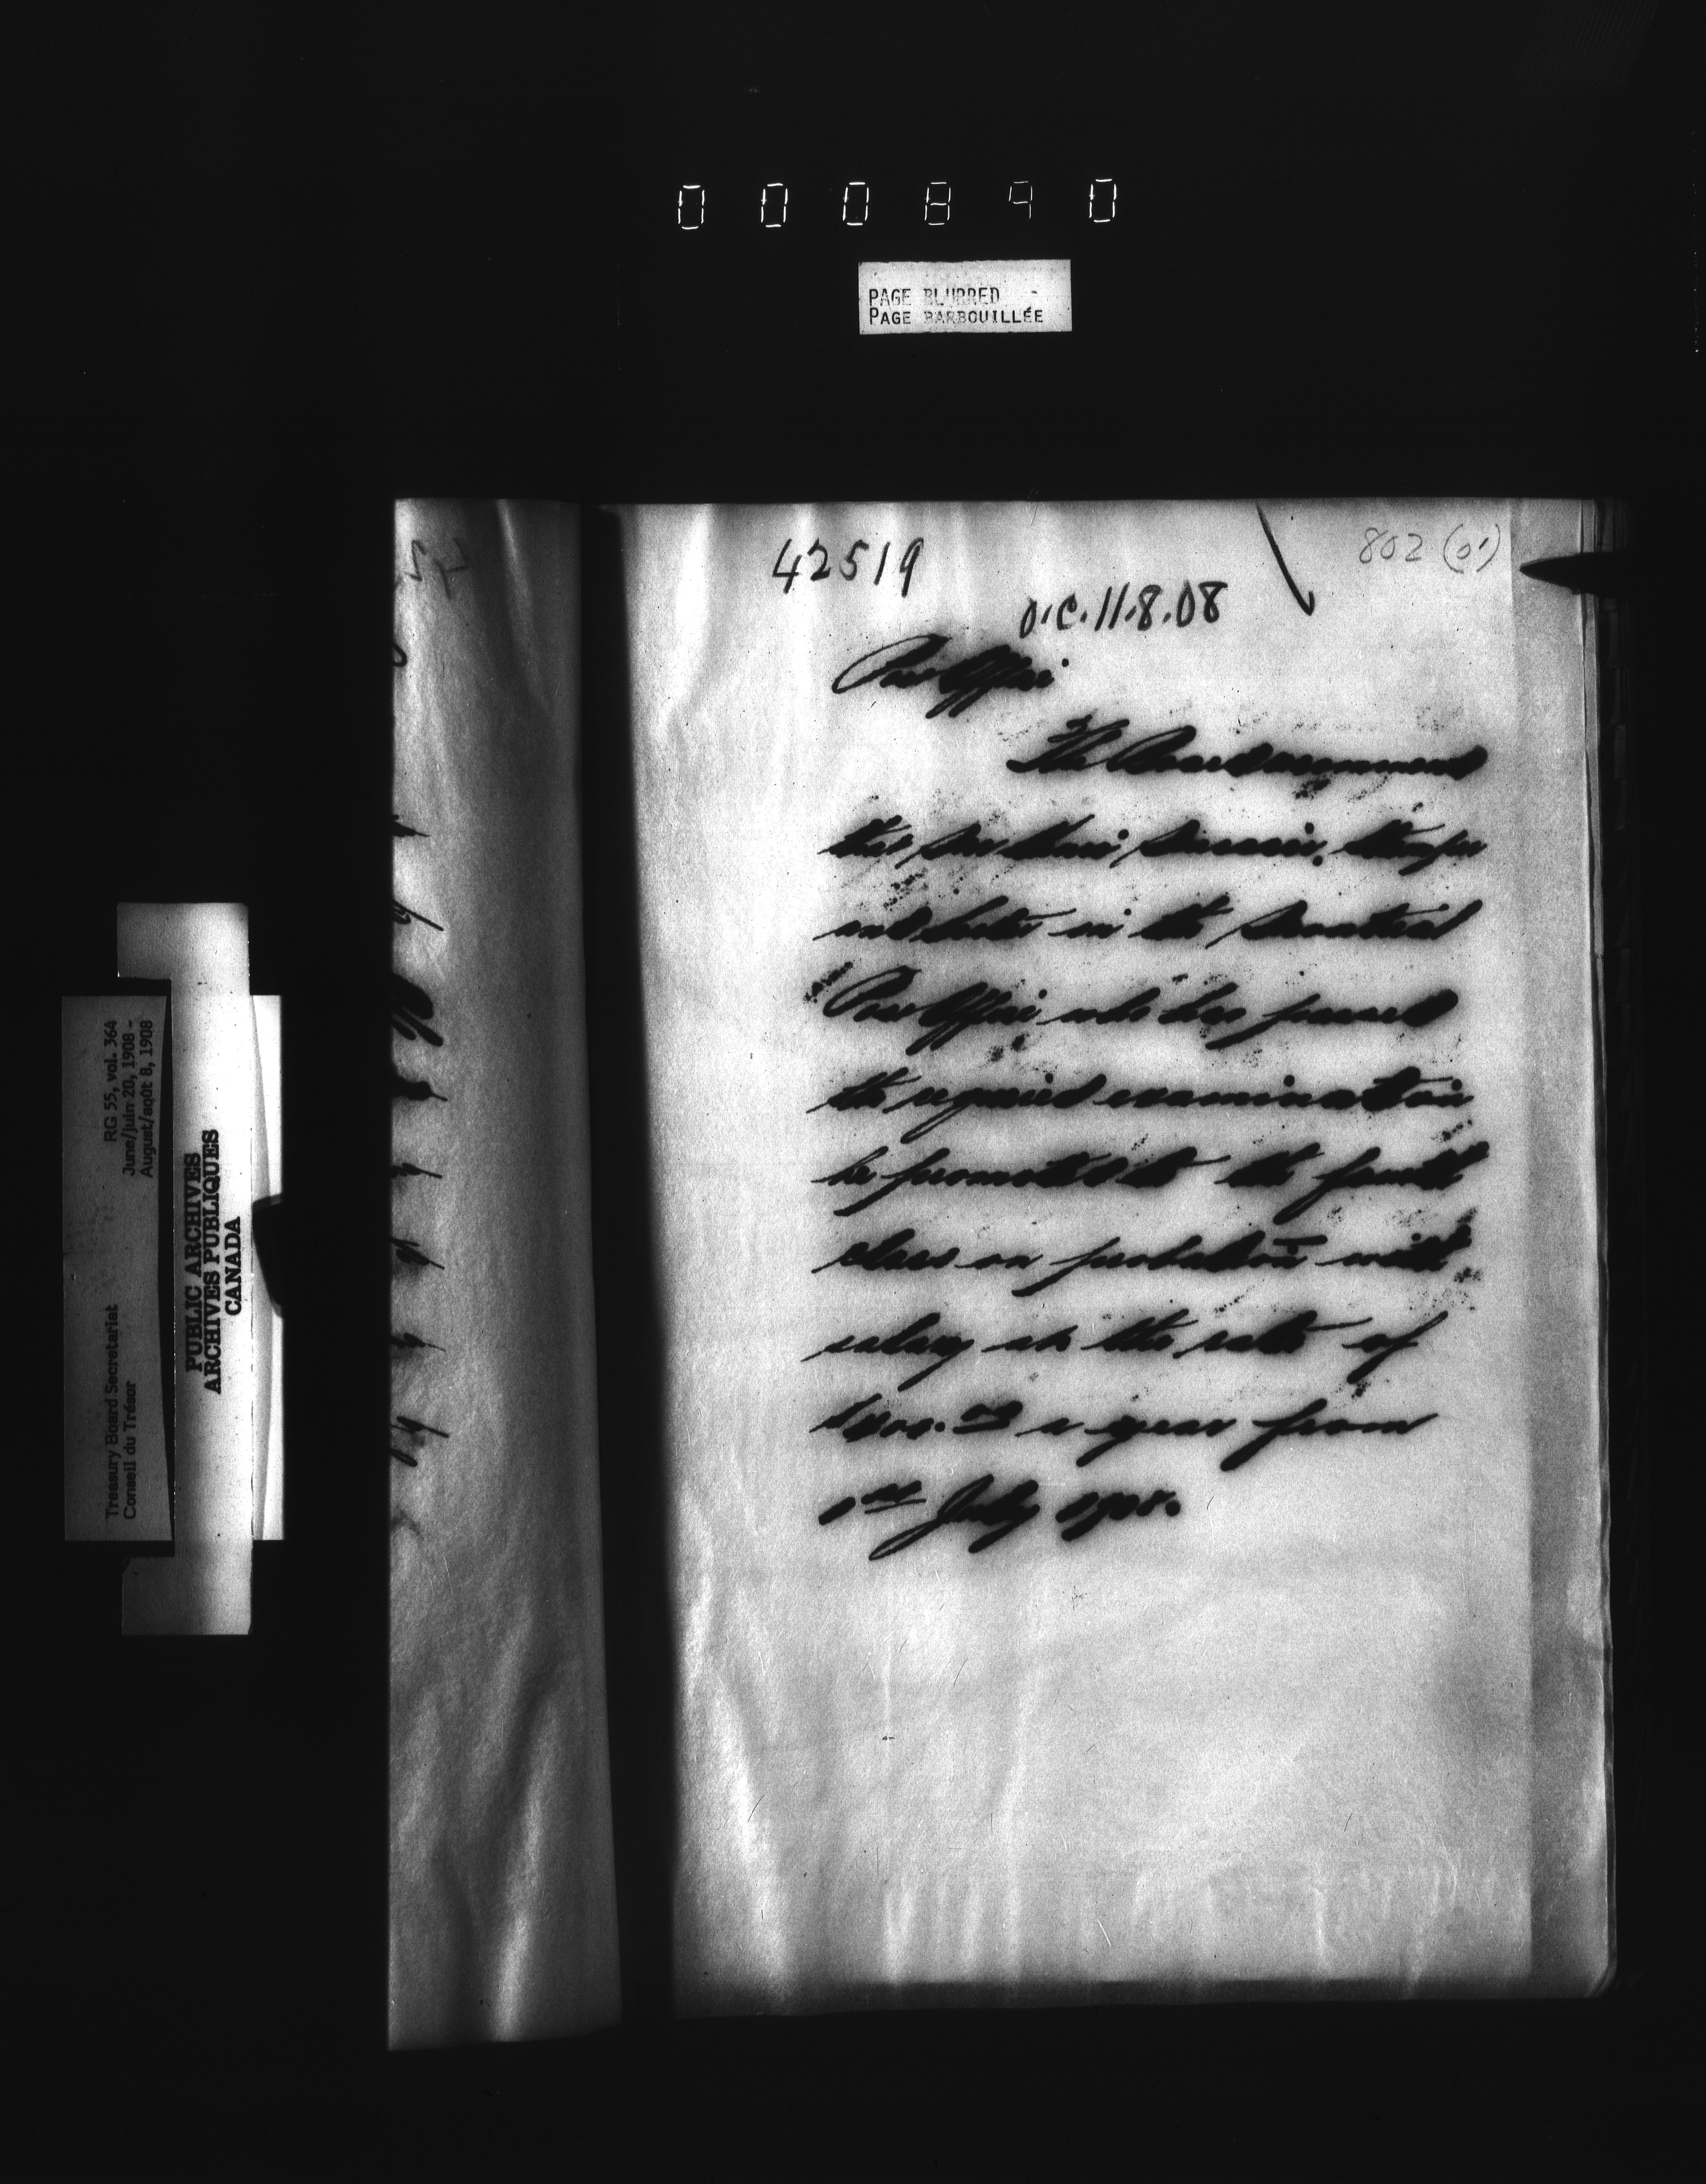 000890
PAGE BLURRED
PAGE BARBOUILLÉE
42519
802 (01)
O.C. 11.8.08
Post Office
The Board recommend
that
in the Montreal
Post Office who has passed
the required examination
be promoted to the fourth
class on probation with
salary at the rate of
a year from
1st July 1908.
RG 55, vol. 364
June/juin 20, 1908 -
August/août 8, 1908
Treasury Board Secretariat
Conseil du Trésor
PUBLIC ARCHIVES
ARCHIVES PUBLIQUES
CANADA